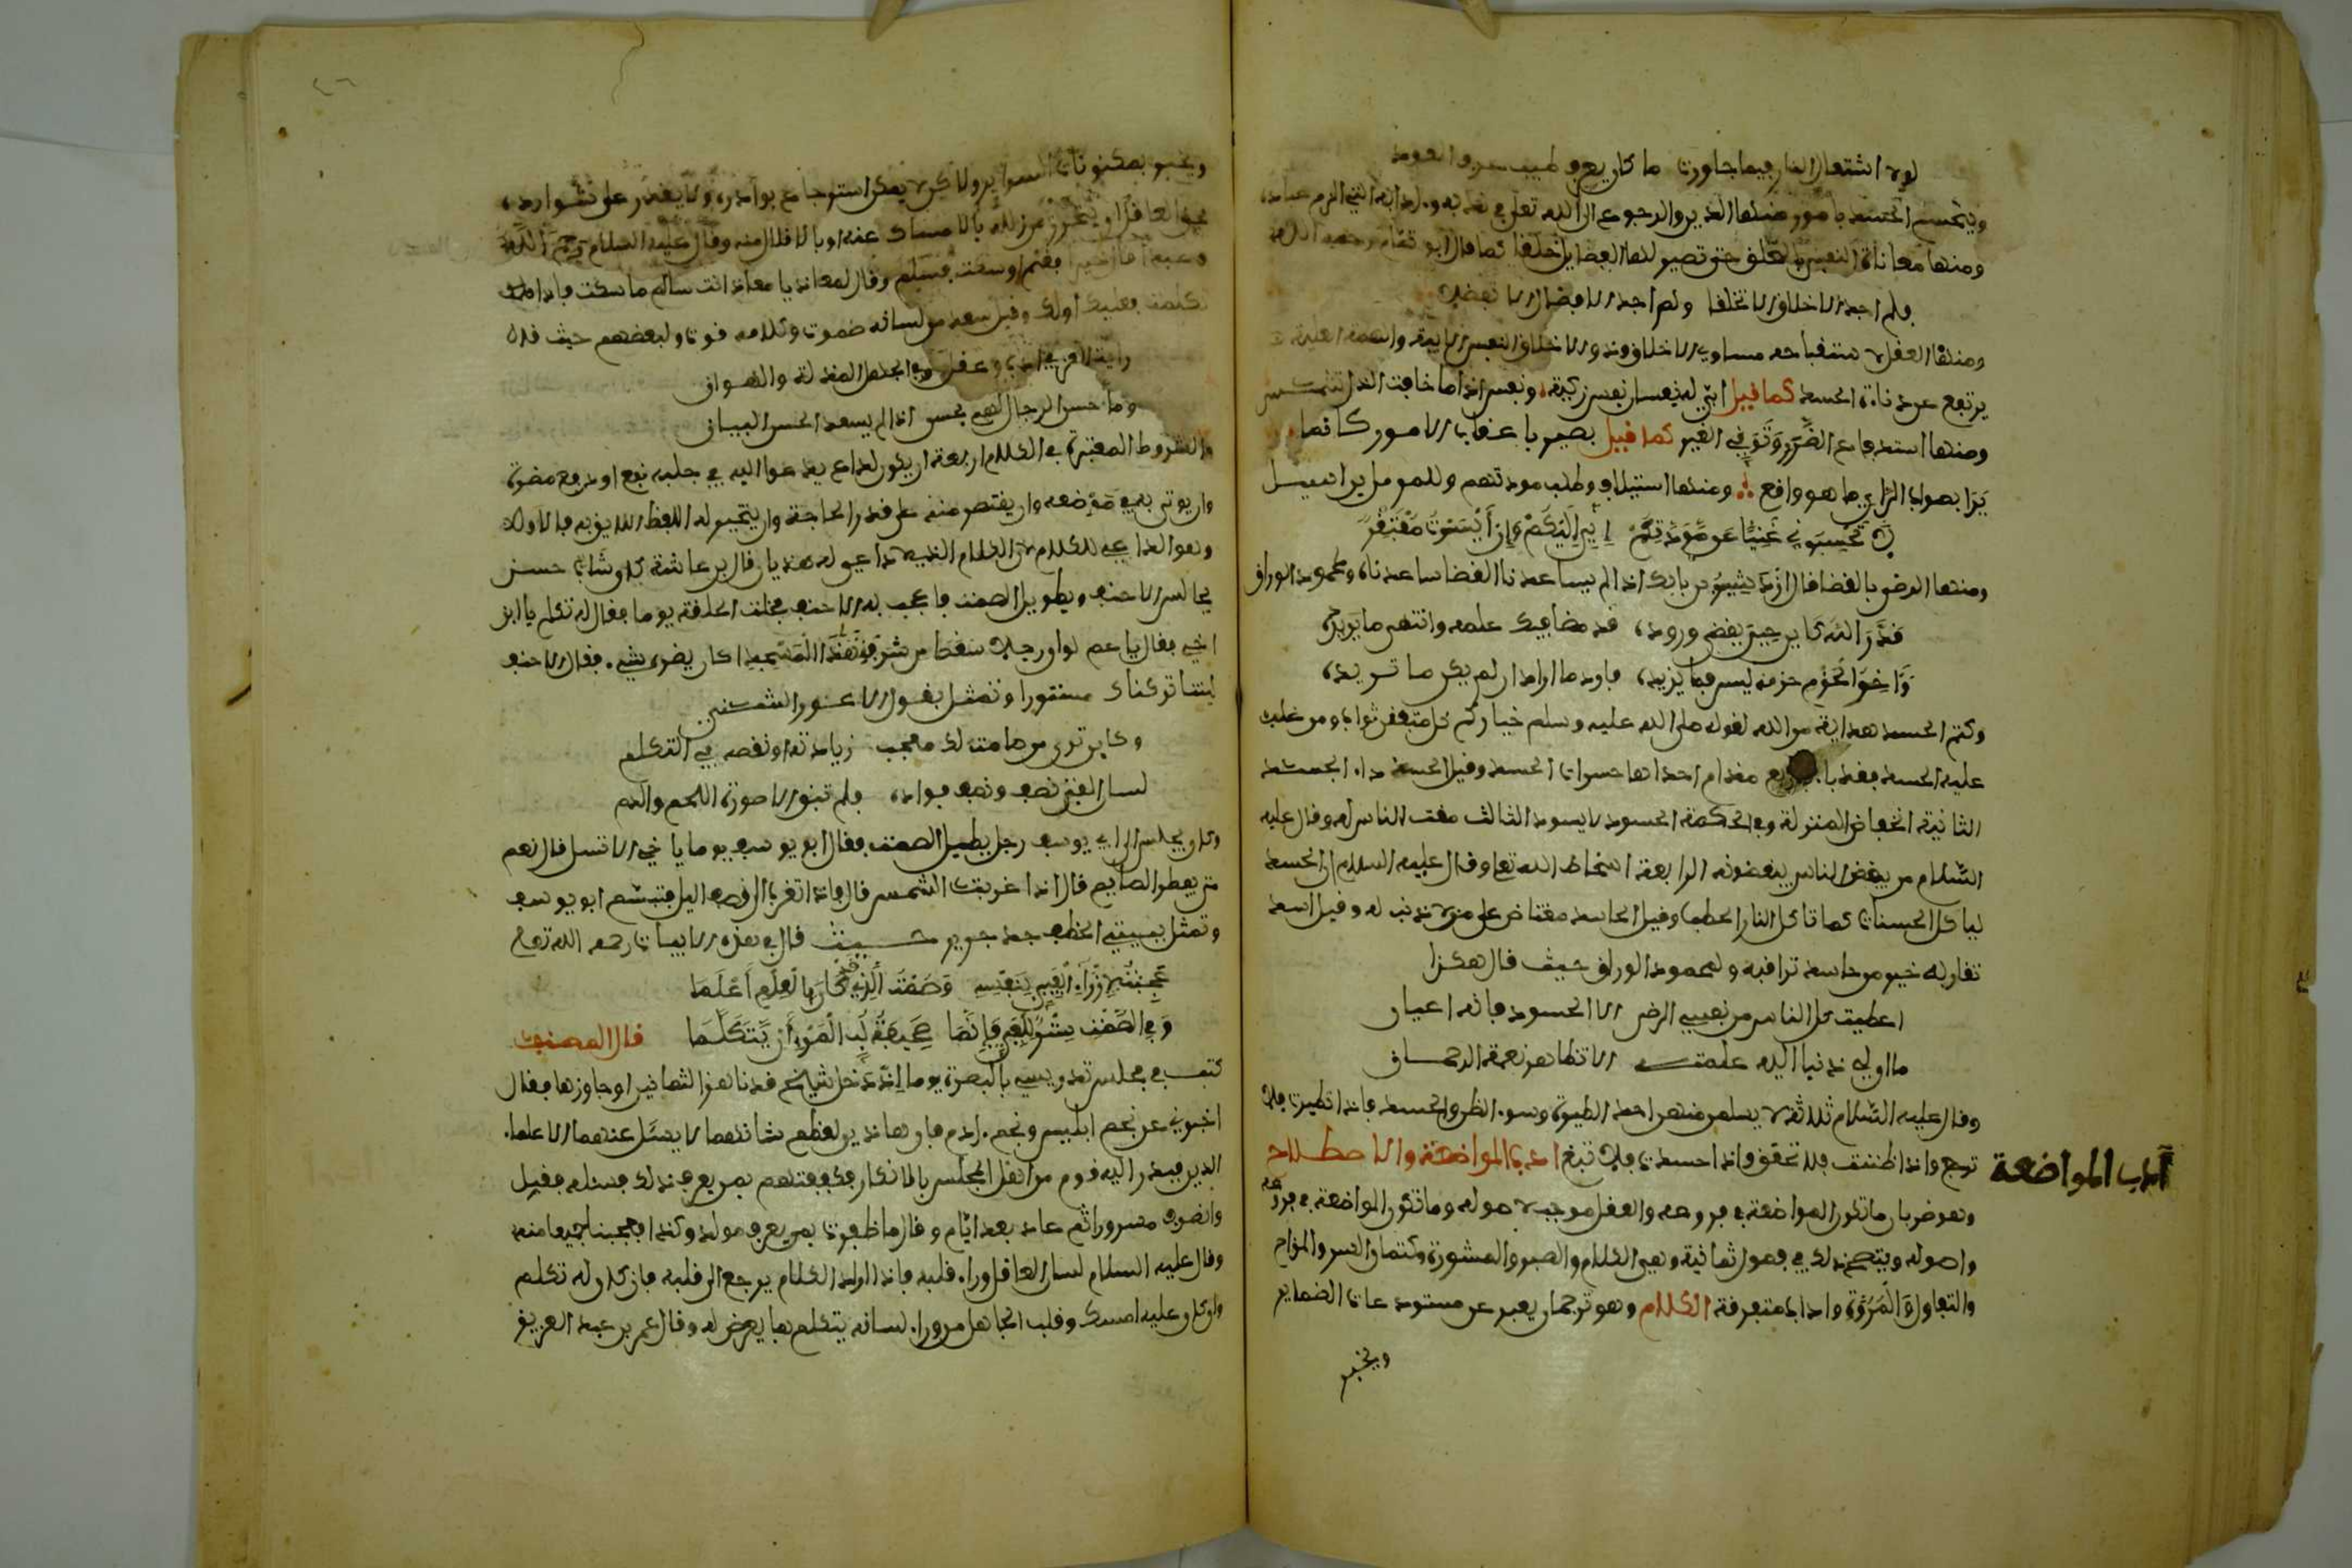 لولا اشتعال النار فيما جاورت ما كان يعرف طيب عرف العود
ويحسم الحسد بأمور منها الدين والرجوع الى الله تعلى في
ومنها معاناة النفس حتى تصير لها الفضايل خلقا كما قال ابو تمام رحمه الله
فلم اجد الاخلاق الا تخلقا ولم اجد الافضال الا تفضلا
ومنها العقل مساوي الاخلاق والاخلاق النفس الابية والهمة العلية
يرتفع عن دناءة الحسد كما قيل ابي له نفسان نفس زكية ونفس اذا ما خافت الذل
ومنها استدفاع الضرر وتوقي الغير كما قيل بصير با عقاب الامور كانما
يرا بصواب الراي ما هو واقع ومنها استيلاف وطلب مودتهم وللمومل
لا تحسبوني غنيا عن مودتكم اني اليكم وان ايسرت مفتقر
ومنها الرضى بالقضا قال ازدشير بن بابك اذا لم يساعدنا القضا ساعدناه ولمحمود الوراق
قدر الله كاين حين يقضى وروده قد مضى فيك علمه وانتهى ما يريده
واخو الحزم حزمه ليس مما يزيده فاود ما اراد ان لم يكن ما تريده
وكتم الحسد هداية من الله لقوله صلى الله عليه وسلم خياركم كل مفتن تواب ومن غلب
عليه الحسد فقد باء باربع مذام احداها حسرات الحسد وقيل الحسد داء الجسد
الثانية انخفاض المنزلة وفي الحكمة الحسود لا يسود الثالث مقت الناس له وقال عليه
السلام من يبغض الناس يبغضونه الرابعة اسخاط الله تعا وقال عليه السلام ان الحسد
لياكل الحسنات كما تاكل النار الحطب وقيل الحاسد مغتاض على من لا ذنب له وقيل اسد
تقاربه خير من حاسد تراقبه ولمحمود الوراق حيث قال هكذا
اعطيت كل الناس من نفسي الرضى الا الحسود فانه اعيان
ما ان لي ذنبا اليه علمته الا تظاهر نعمة الرحمان
وقال عليه السلام ثلاثة لا يسلم منهن احد الطيرة وسوء الظن والحسد فاذا تطيرت فلا
ترجع واذا ظننت فلا تحقق واذا احسدت فلا تبغ ادب المواضعة والاصطلاح
آداب المواضعة
وهو ضربان ما تكون المواضعة في فروعه والعقل موجب لاصوله وما تكون المواضعة في فروعه
واصوله ويتضح ذلك في فصول ثمانية وهي الكلام والصبر والمشورة وكتمان السر والمزاح
والتفاول والمروة واداب متفرقة الكلام وهو ترجمان يعبر عن مستودعات الضماير
ويخبر
ويخبر بمكنونات السراير ولاكن لا يمكن استرجاع بوادره ولا يقدر على شوارده
فحق العاقل ان يتحرز من زلله بالامساك عنه او بالاقلال منه وقال عليه السلام رحم الله
عبدا قال خيرا فغنم او سكت فسلم وقال لمعاذ يا معاذ انت سالم ما سكت فاذا
تكلمت فعليك اولك وقيل سعد من لسانه صموت وكلامه قوت ولبعضهم حيث قال
رايت العز في ادب وعقل وفي الجهل المذلة والهوان
وما حسن الرجال لهم بحسن اذا لم يسعد الحسن البيان
والشروط المعتبرة في الكلام اربعة ان يكون لداع يدعوا اليه في جلب نفع او دفع مضرة
وان يوتى به في موضعه وان يقتصر منه على قدر الحاجة وان يتخير له اللفظ الذي يؤديه فالاول
وهو الداعي للكلام لان الكلام الذي لا داعي له هذيان قال بن عائشة كان شاب حسن
يجالس الاحنف ويطيل الصمت فاعجب به الاحنف فخلت الحلقة يوما فقال له تكلم يا ابن
اخي فقال يا عم لو ان رجلا سقط من شرفة هذا المسجد اكان يضره شيء فقال الاحنف
ليتنا تركناك مستورا وتمثل بقول الاعور الشني
وكاين ترى من صامت لك معجب زيادته او نقصه في التكلم
لسان الفتى نصف ونصف فواده فلم تبق الا صورة اللحم والدم
وكان يجلس الى ابي يوسف رجل يطيل الصمت فقال ابو يوسف يوما يا خي الا تسل قال نعم
متى يفطر الصايم قال اذا غربت الشمس قال فاذا لم تغرب الى نصف اليل فتبسم ابو يوسف
وتمثل ببيتي الخطفى جد جرير حيث قال في هذه الابيات رحمه الله تعلى
عجبت لازراء العيي بنفسه وصمت الذي قد كان بالعلم اعلما
وفي الصمت ستر للعيي وانما صحيفة لب المرء ان يتكلما قال المصنف
كنت في مجلس تدريسي بالبصرة يوما اذ دخل شيخ قد ناهز الثمانين او جاوزها فقال
اخبرني عن نجم ابليس ونجم ادم فان هاذين لعظم شانهما لا يسئل عنهما الا علماء
الدين فبدر اليه قوم من اهل المجلس بالانكار فكففتهم
وانصرف مسرورا ثم عاد بعد ايام وقال ما ظفرت بمن يعرف مولد وكذا فعجبنا جميعا منه
وقال عليه السلام لسان العاقل وراء قلبه فاذا اراد الكلام يرجع الى قلبه فان كان له تكلم
وان كان عليه امسك وقلب الجاهل من وراء لسانه يتكلم بما يعرض له وقال عمر بن عبد العزيز